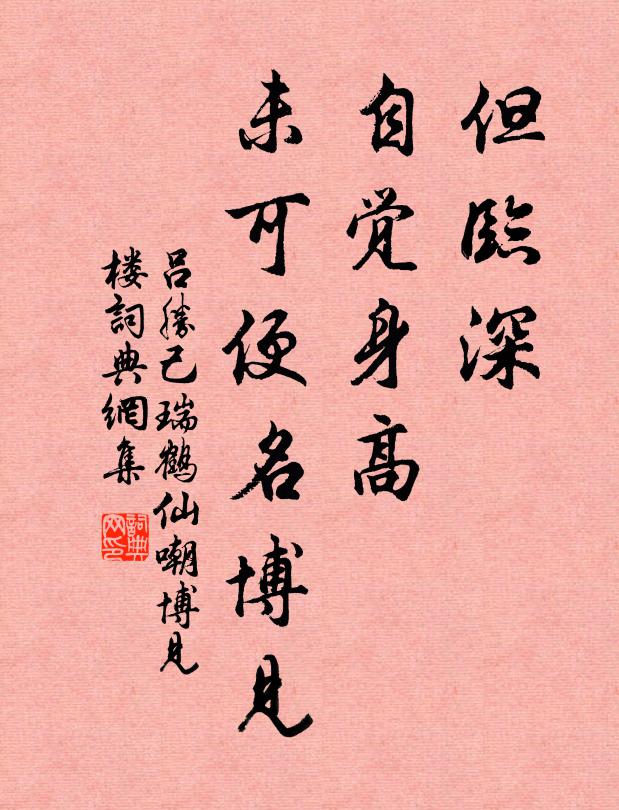 但臨深
自覺身高
未可便名博見
呂勝己瑞鶴仙嘲博見
楼詞典網集
詞典网印